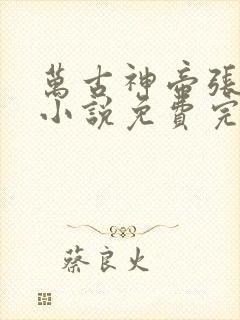 萬古神帝張
小說免費完
蔡良火